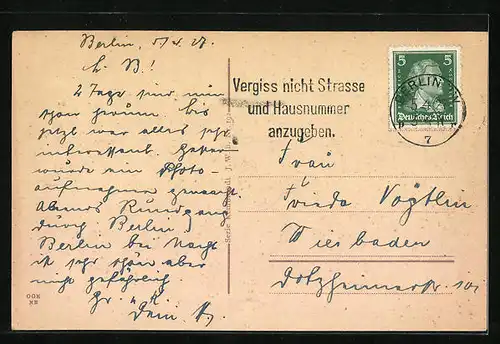 Berlin, 5/4. 27.
L. B!
2 Tage sind wir
schon herum bis
jetzt war alles sehr
interessant. Gestern
wurde ein Photo-
aufnahme gemacht.
Abends Rundgang
durch Berlin,
Berlin bei Nacht
ist sehr schön aber
nicht gefährlich
Gr. u. K.
Dein
Vergiss nicht Strasse
und Hausnummer
anzugeben.
5 5
Deutsches Reich
BERLIN
7
Frau
Frieda Vögtlin
Wiesbaden
Dotzheimerstr. 101
Serie